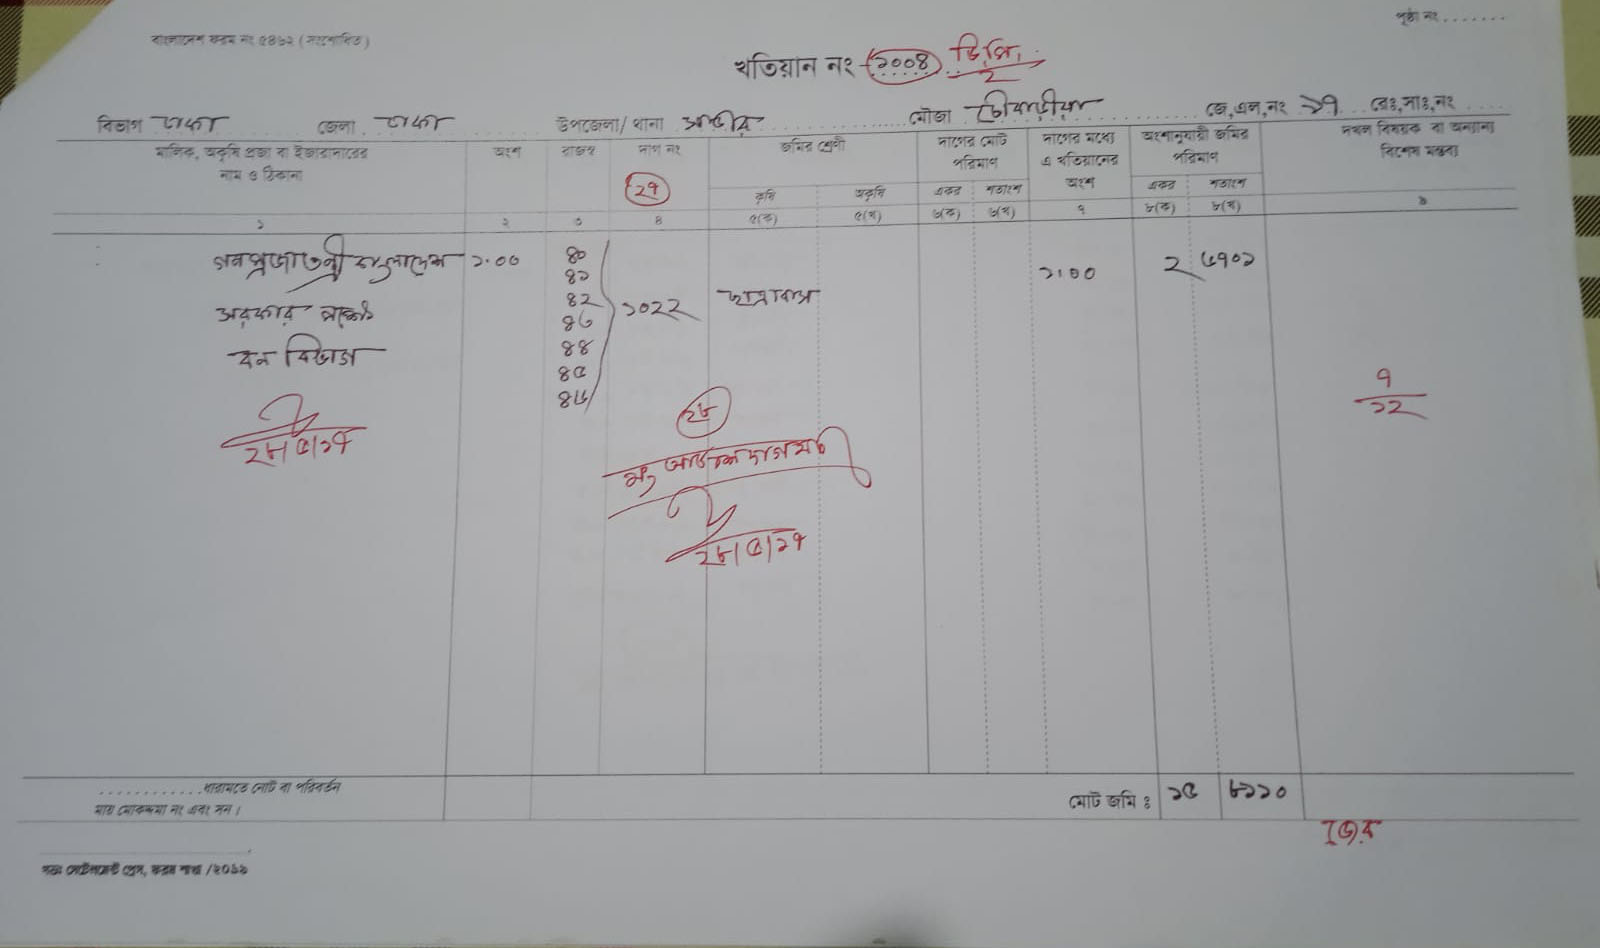 পৃষ্ঠা নং.......
বাংলাদেশ ফরম নং ৫৪৬২ (সংশোধিত)
খতিয়ান নং ১০০৪ ডি,পি, ২
বিভাগ ঢাকা জেলা ঢাকা উপজেলা/ থানা সাভার মৌজা জে,এল,নং ১৭ রেঃ,সাঃ,নং
মালিক, অকৃষি প্রজা বা ইজারাদারের অংশ রাজস্ব দাগ নং জমির শ্রেণী দাগের মোট দাগের মধ্যে অংশানুযায়ী জমির দখল বিষয়ক বা অন্যান্য
নাম ও ঠিকানা পরিমাণ এ খতিয়ানের পরিমাণ বিশেষ মন্তব্য
২৭ কৃষি অকৃষি একর শতাংশ অংশ একর শতাংশ
১ ২ ৩ ৪ ৫(ক) ৫(খ) ৬(ক) ৬(খ) ৭ ৮(ক) ৮(খ) ৯
গনপ্রজাতন্ত্রী বাংলাদেশ ১.০০ ৪০ ১.০০ ২ ৬৭০১
৪১
সরকার পক্ষে ৪২ ১০২২ ছাত্রাবাস
৪৩
বন বিভাগ ৪৪
৪৫
৪৬
৭
১২
২৮
২৮/৫/১৭
২৮/৫/১৭
............ধারামতে নোট বা পরিবর্তন
মায় মোকদ্দমা নং এবং সন।
মোট জমি ঃ ১৫ ৮১১০
পদ্মা সেটেলমেন্ট প্রেস, ফরম শাখা /২০১১